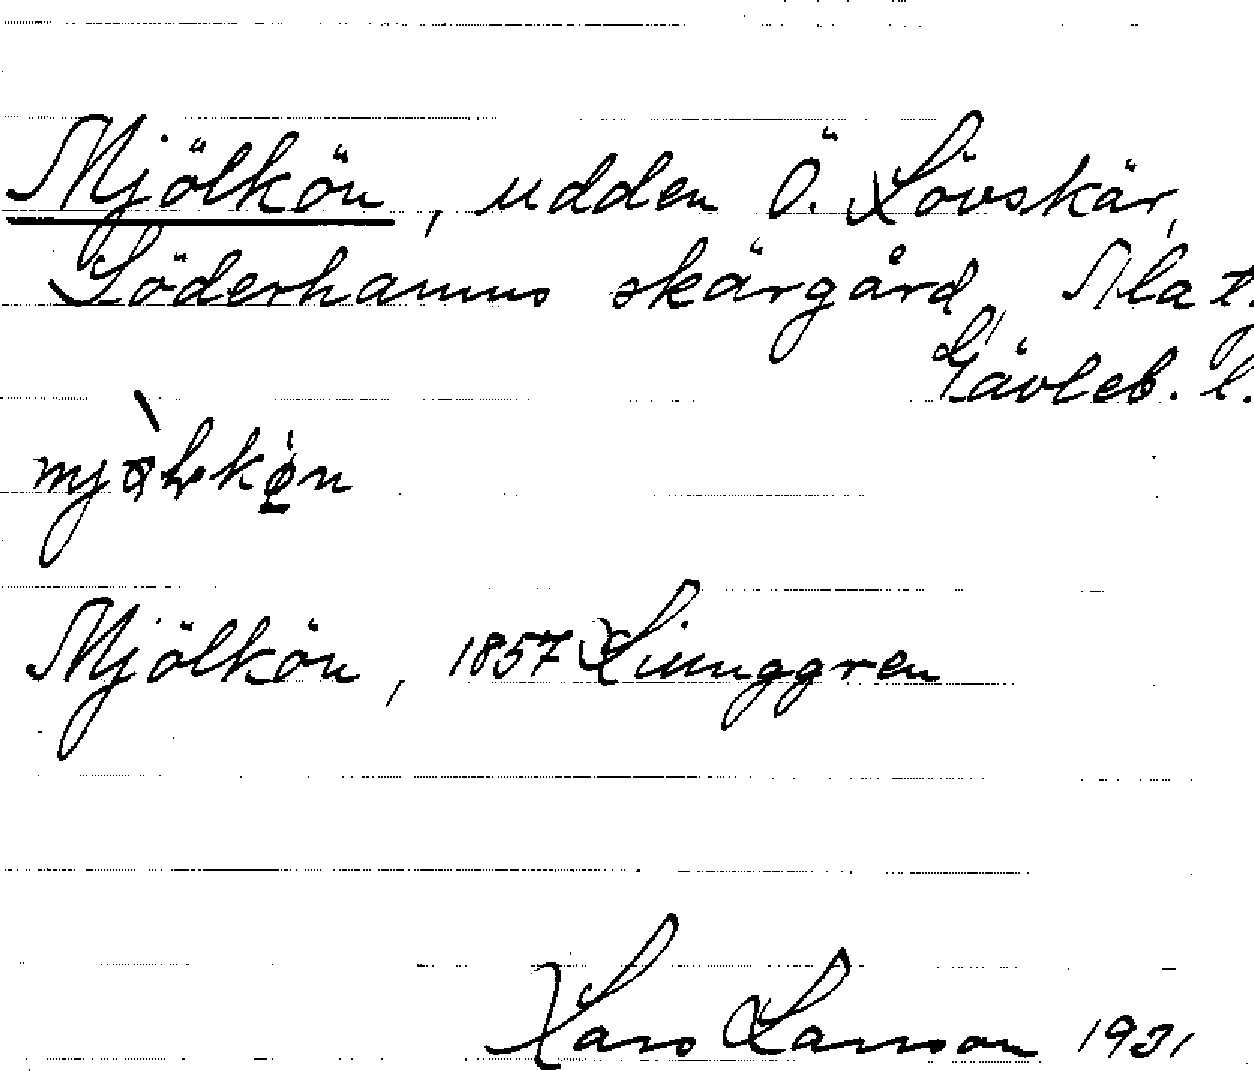 Mjölkön, udden Ö. Lövskär,
Söderhamns skärgård, Alat,
Gävleb. l.
Mjölkön, 1857 Ljunggren
Lars Larsson 1931